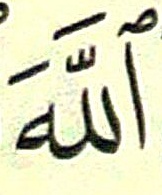 ٱللَّهَ